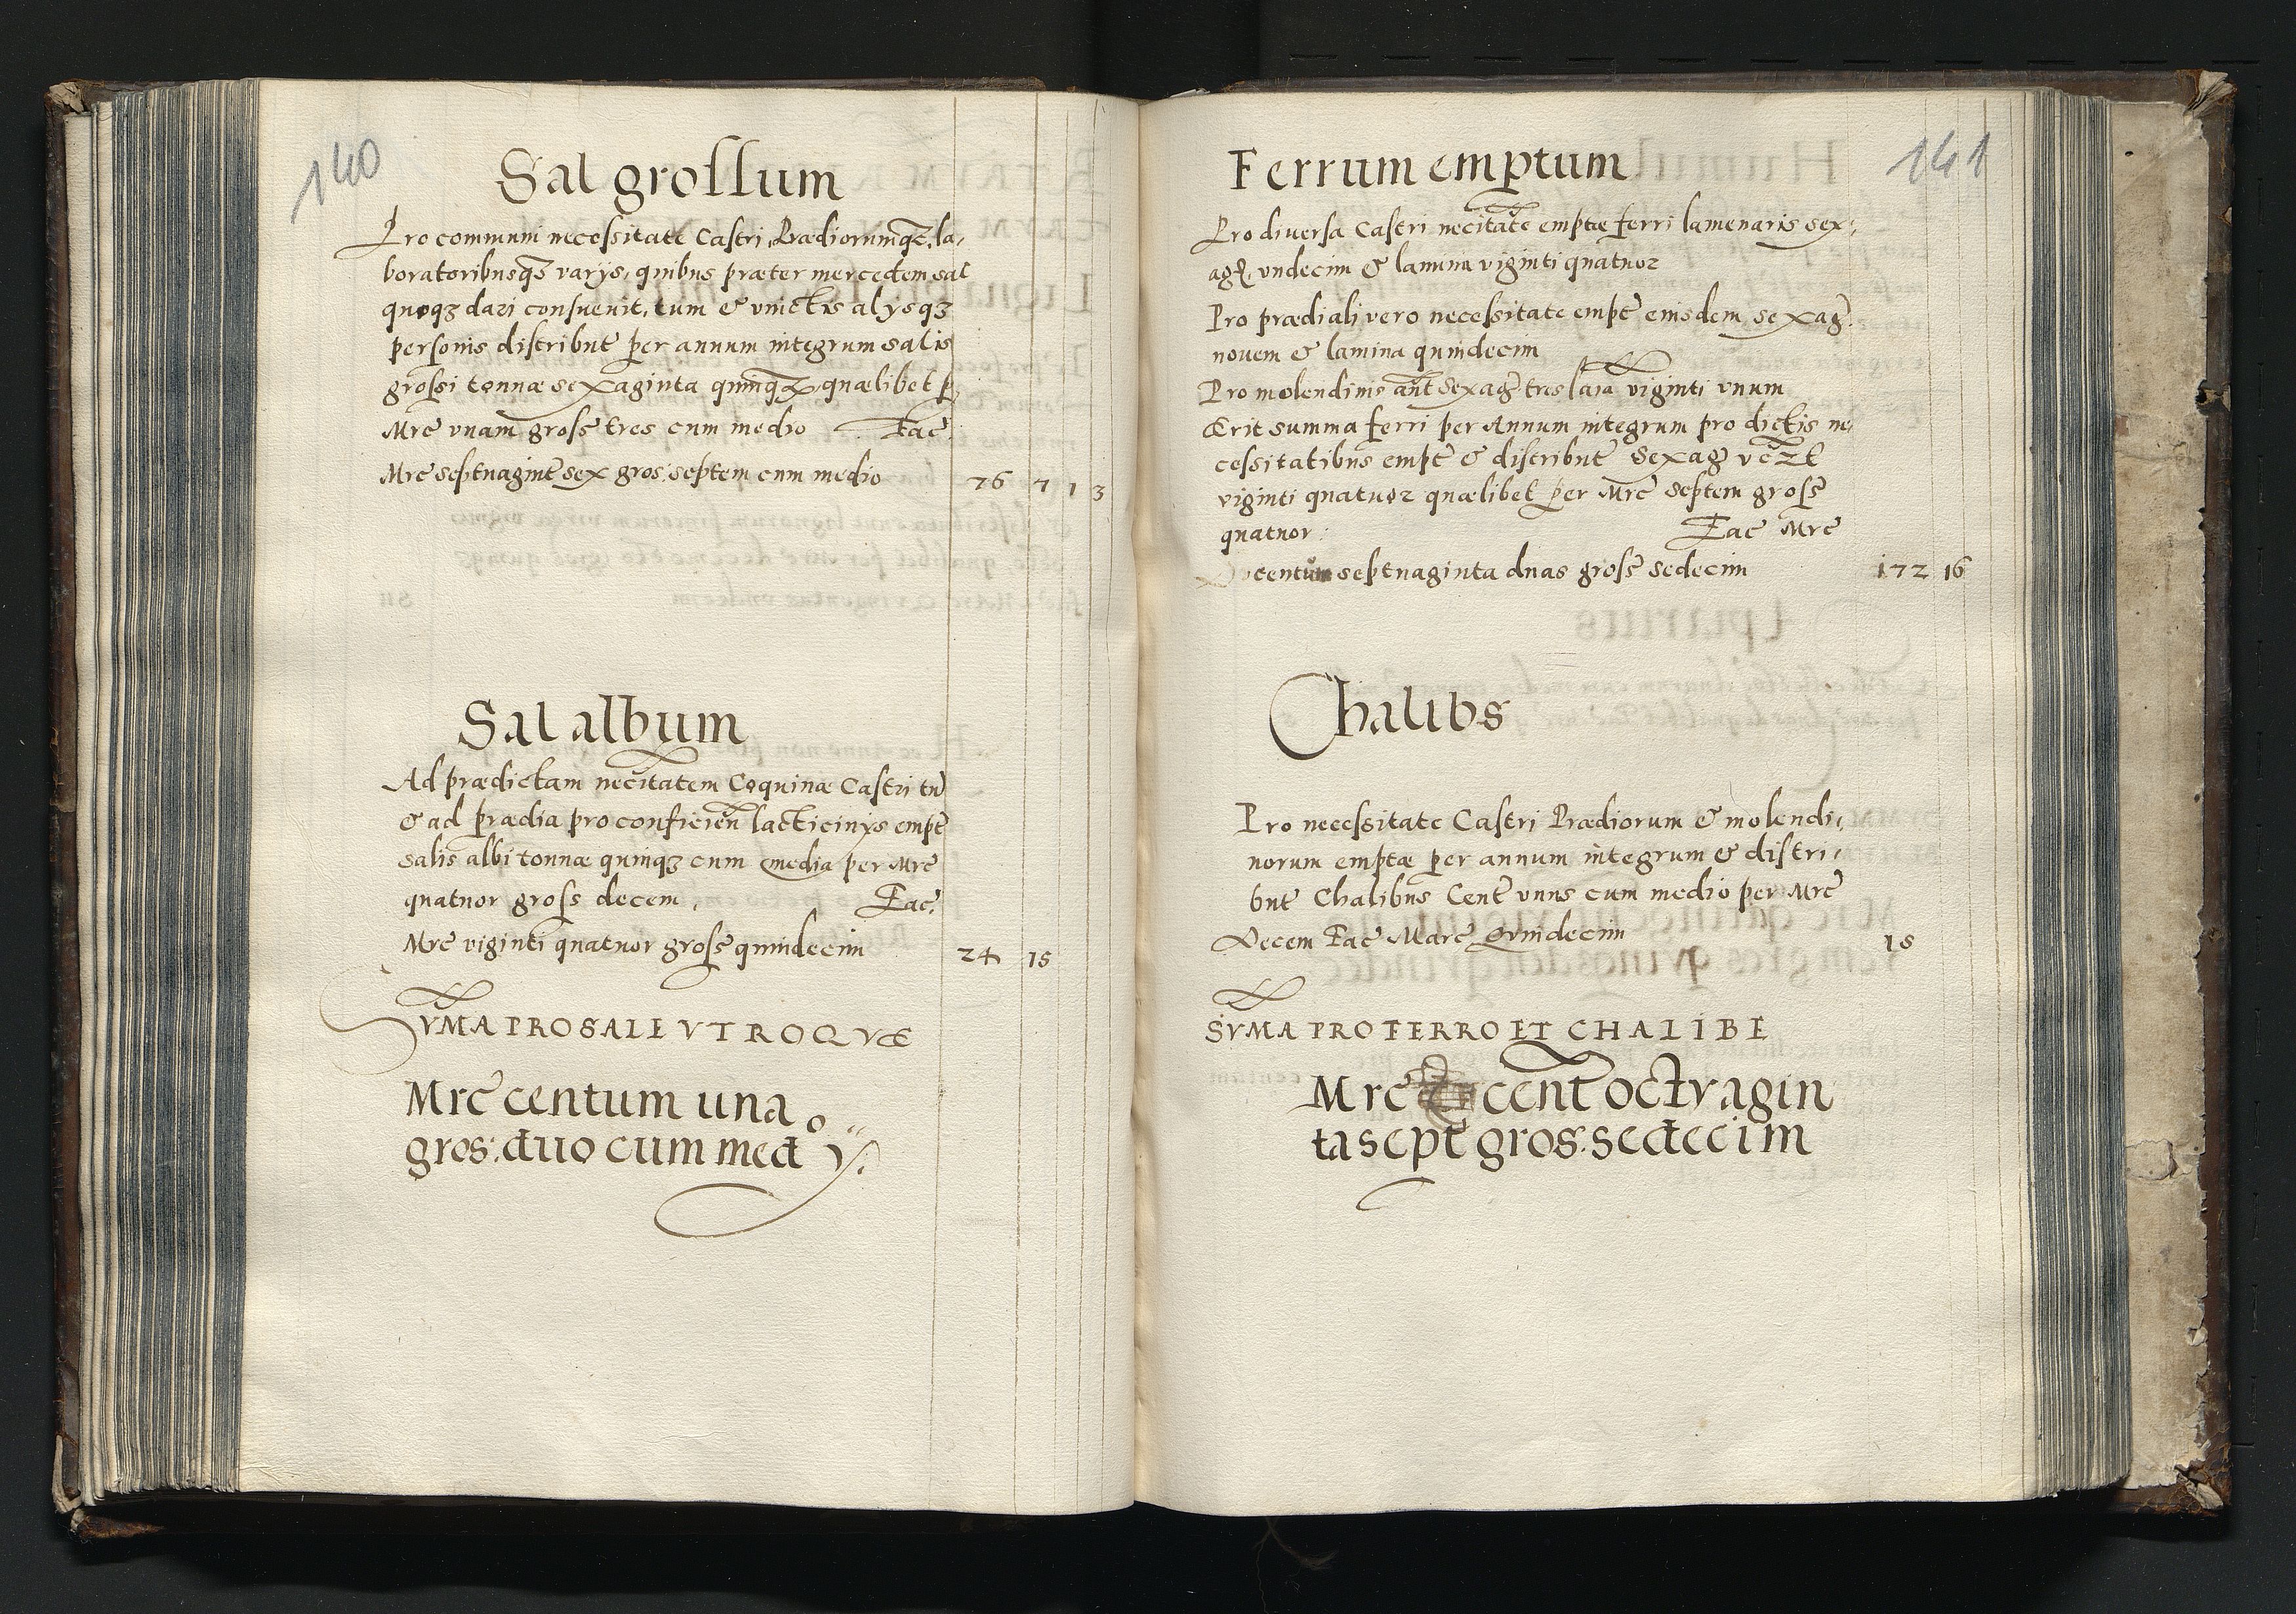 140
Sal grossum
Pro communi necessitate Castri, Prædiorumq₃, la,
boratoribusq₃ varijs, quibus præter mercedem sal
quoq₃ dari consuevit, tum & vinctis alijsq₃
personis distribut per annum integrum salis
grossi tonnæ sexaginta quinq₃, quælibet p
Mrc̃ vnam gross̃ tres cum medio Fac̃
Mrc̃ septuagint sex gros: septem cum medio 76 7 1 3
Sal album
Ad prædictam neccitatem Coquinæ Castri tũ
& ad prædia pro conficien̄ lacticinijs empt̃
salis albi tonnæ quinq₃ cum media per Mrc̃
quatuor gross decem, Fac̃
Mrc̃ viginti quatuor gross̃ quindecim 24 15
SVMA PRO SALE VTROQVE
Mrc̃ centum una
gros: duo cum med
o
141
Ferrum emptum
Pro diversa Castri neccitate emptæ ferri lamenaris sex,
ag. vndecim & lamina viginti quatuor
Pro prædiali vero necessitate empt̃ eiusdem sexag̃
novem & lamina quindecim
Pro molendinis aut̃ sexag̃ tres laīa viginti vnum
Erit summa ferri per Annum integrum pro dictis ne,
cessitatibus empt̃ & distribut̃ Sexag
viginti quatuor quælibet per Mrc̃ septem gross̃
quatuor: Fac̃ Mrc̃
centum septuaginta duas gross̃ sedecim 172 16
Chalibs
Pro necessitate Castri Prædiorum & molendi,
norum emptæ per annum integrum & distri,
but̃ Chalibus Cent̃ vnus cum medio per Mrc̃
Decem Fac̃ Marc̃ Quindecim 15
SVMA PRO FERRO ET CHALIBE
Mrc̃ cent̃ octvagin
ta sept̃ gros: sedecim